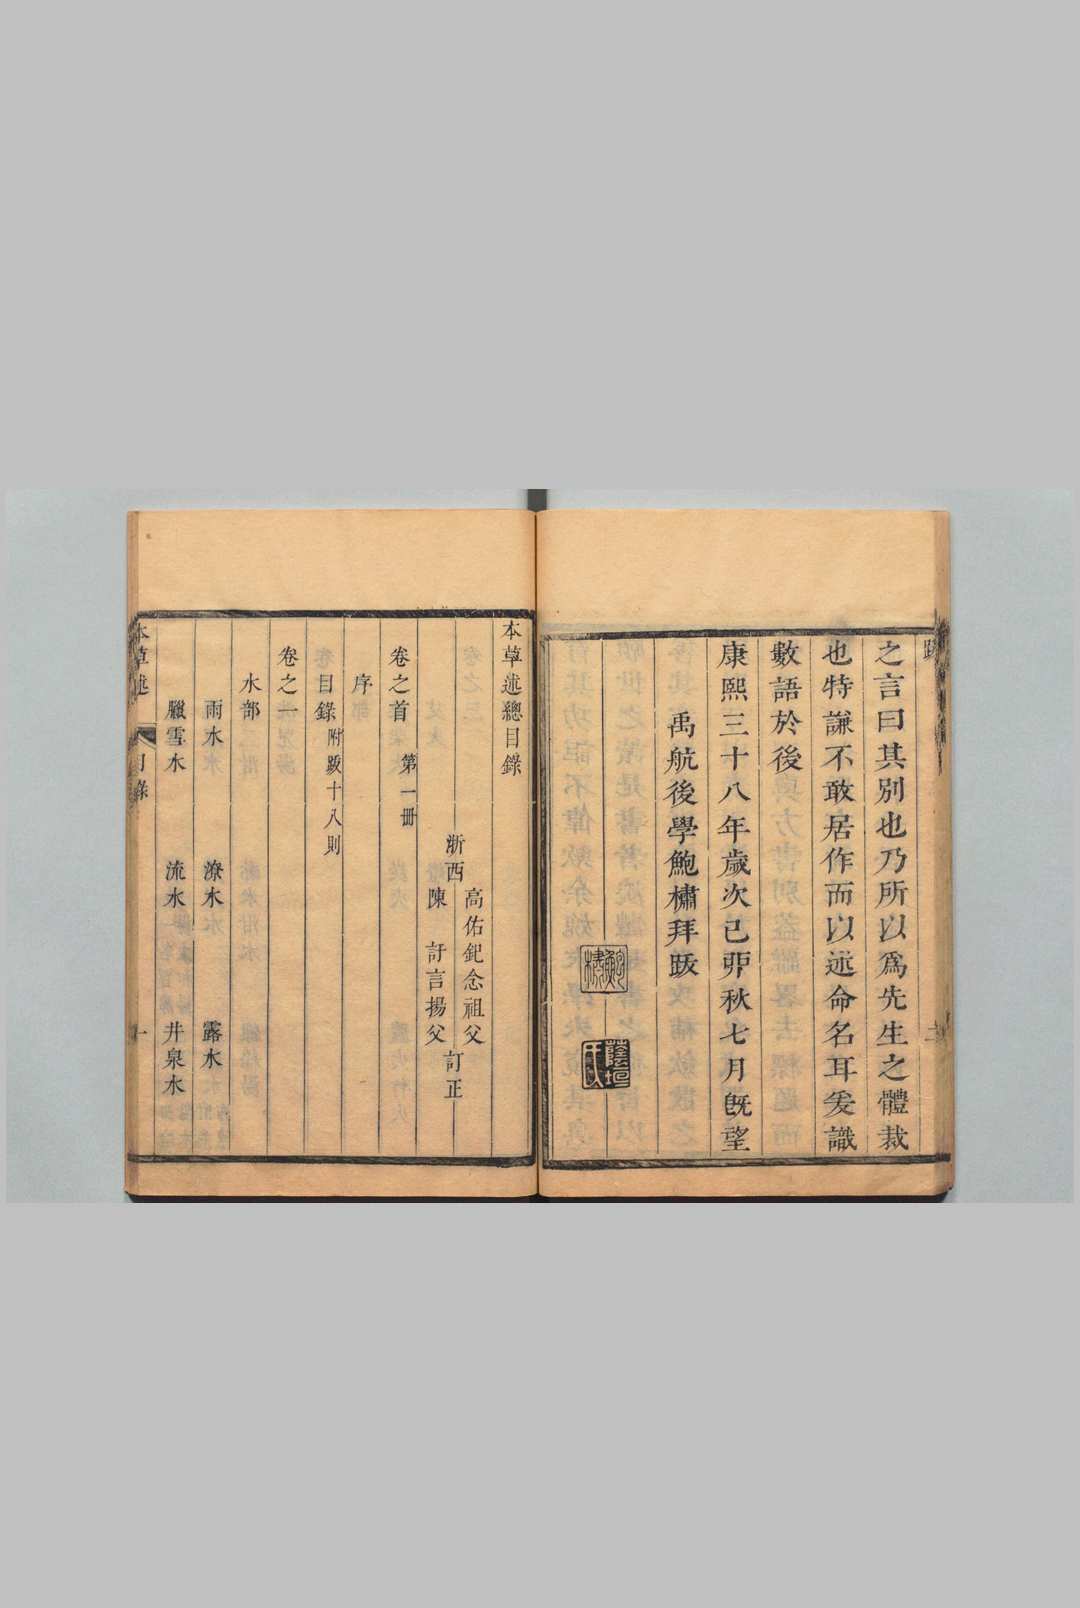 之言曰其別也乃所以爲先生之體裁
也特謙不敢居作而以述命名耳爰識
數語於後
康熙三十八年歲次己卯秋七月旣望
禹航後學鮑橚拜跋
本草述總目錄
浙西 高佑釲念祖父
陳訏言揚父 訂正
卷之首 第一册
序
目錄 附跋十八則
卷之一
水部
雨水 潦水 露水
臘雪水 流水 井泉水
本草述 目錄 一